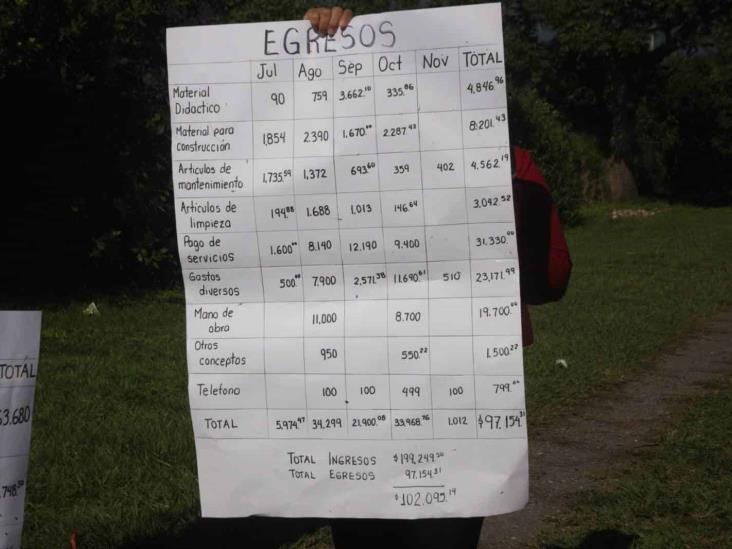 EGRESOS
Jul Ago Sep Oct Nov TOTAL
Material Didactico 90 759 3.662.10 335.86 4,846.96
Material para construcción 1,854 2.390 1.670.00 2.287.43 8.201.43
Articulos de mantenimiento 1,735.59 1,372 693.60 359 402 4,562.19
Articulos de limpieza 194.88 1.688 1.013 146.64 3,042.52
Pago de servicios 1.600.00 8.140 12.190 9.400 31.330.00
Gastos diversos 500.00 7.900 2,571.38 11.690.61 510 23,171.99
Mano de obra 11,000 8.700 19.700.00
Otros conceptos 950 550.22 1.500.22
Telefono 100 100 499 100 799.00
TOTAL 5,974.47 34,299 21,900.08 33,968.76 1.012 $97.154.31
TOTAL INGRESOS $199,249.50
TOTAL EGRESOS 97.154.31
$102,095.19
TOTAL
53.680
.748.50